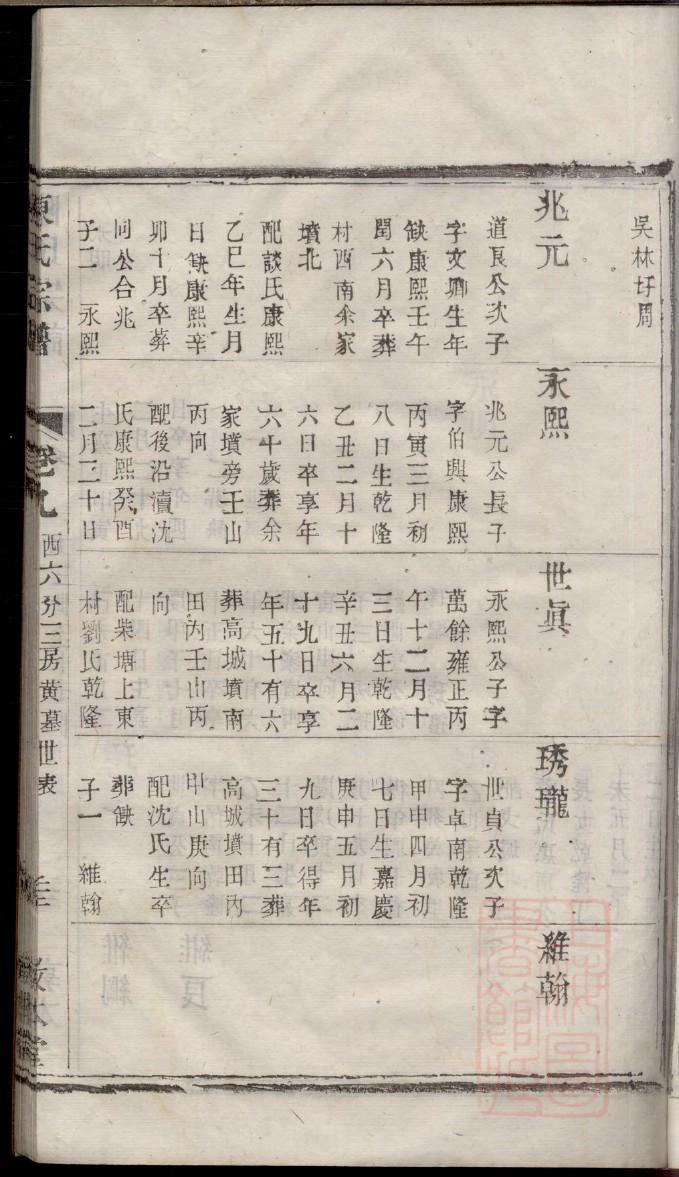 吳林圩周
兆元
道良公次子
字文卿生年
缺康熙壬午
閏六月卒葬
村西南余家
墳北
配談氏康熙
乙巳年生月
日缺康熙辛
卯十月卒葬
同公合兆
子二 永熙
永熙
兆元公長子
字伯興康熙
丙寅三月初
八日生乾隆
乙丑二月十
六日卒享年
六十歲葬余
家墳旁壬山
丙向
配後沿瀆沈
氏康熙癸酉
二月二十日
世眞
永熙公子字
萬餘雍正丙
午十二月十
三日生乾隆
辛丑六月二
十九日卒享
年五十有六
葬高城墳南
田內壬山丙
向
配柴塘上東
村劉氏乾隆
琇瓏
世貞公次子
字卓南乾隆
甲申四月初
七日生嘉慶
庚申五月初
九日卒得年
三十有三葬
高城墳田內
甲山庚向
配沈氏生卒
葬缺
子一 維翰
維翰
陳氏宗譜
卷九
西六分三房黃墓世表